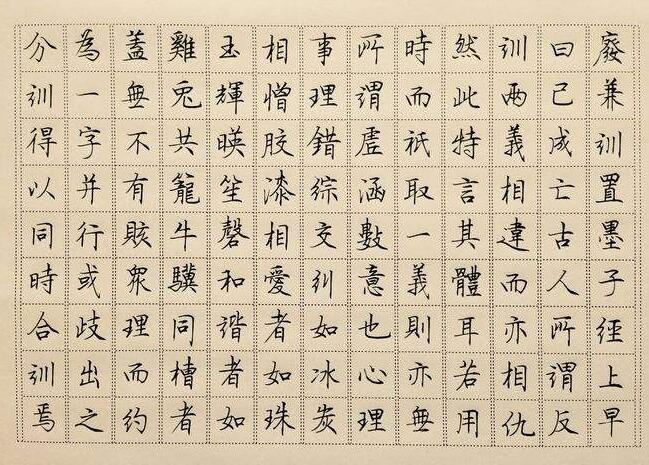 廢兼訓置墨子經上早
曰已成亡古人所謂反
訓兩義相違而亦相仇
然此特言其體耳若用
時而祇取一義則亦無
所謂虛涵數意也心理
事理錯綜交糾如冰炭
相憎胶漆相愛者如珠
玉輝暎笙磬和諧者如
雞兔共籠牛驥同槽者
蓋無不有賅眾理而約
為一字并行或歧出之
分訓得以同時合訓焉